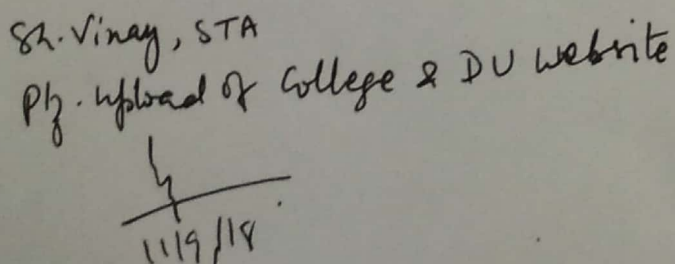 Sh. Vinay, STA
Plz. upload of College & DU website
11/9/18